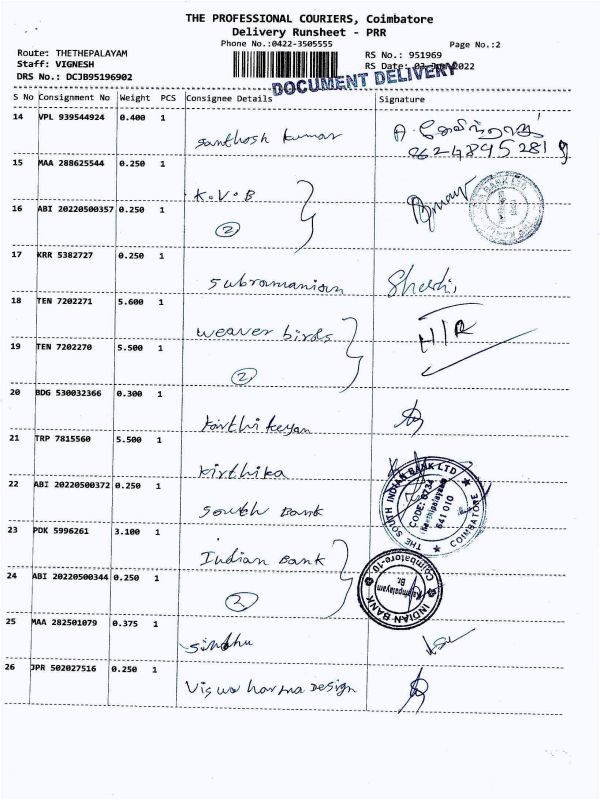 THE PROFESSIONAL COURIERS, Coimbatore
Delivery Runsheet - PRR
Phone No.:0422-3505555
Page No.:2
Route: THETHEPALAYAM
RS No.: 951969
Staff: VIGNESH
RS Date: 03-Jun-2022
DRS No.: DCJB95196902
DOCUMENT DELIVERY
S No Consignment No Weight PCS Consignee Details Signature
14 VPL 939544924 0.400 1
santhosh kumar
9624895281
15 MAA 288625544 0.250 1
K.V.B
16 ABI 20220500357 0.250 1
2
17 KRR 5382727 0.250 1
Subramanian
18 TEN 7202271 5.600 1
weaver birds H/R
19 TEN 7202270 5.500 1
2
20 BDG 530032366 0.300 1
kirthi keyan
21 TRP 7815560 5.500 1
kirthika
22 ABI 20220500372 0.250 1
South Bank
THE SOUTH INDIAN BANK LTD. COIMBATORE
CODE: 0734
641 010
23 PDK 5996261 3.100 1
Indian Bank
24 ABI 20220500344 0.250 1
2
INDIAN BANK Coimbatore-10
Br.
25 MAA 282501079 0.375 1
sindhu
26 JPR 502027516 0.250 1
Viswa karma Design